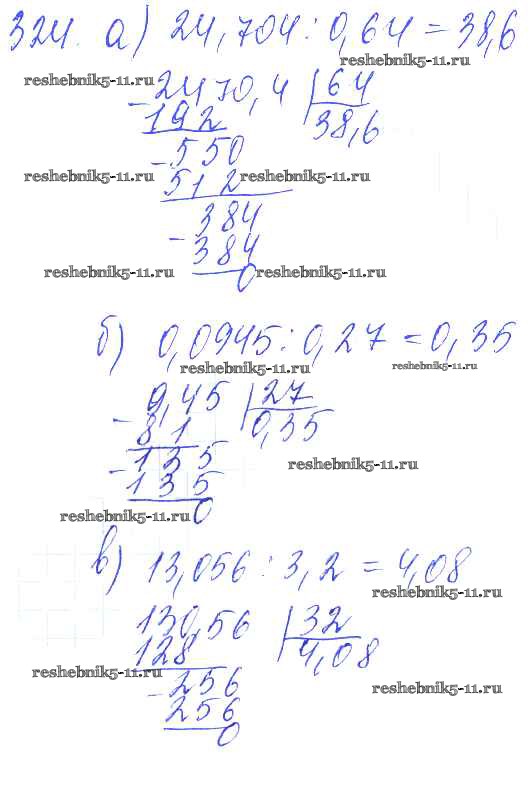 324. а) 24,704 : 0,64 = 38,6
reshebnik5-11.ru
- 2470,4 | 64
reshebnik5-11.ru
192 38,6
- 550
reshebnik5-11.ru reshebnik5-11.ru
512
384
- 384
reshebnik5-11.ru 0 reshebnik5-11.ru
б) 0,0945 : 0,27 = 0,35
reshebnik5-11.ru reshebnik5-11.ru
- 9,45 | 27
81 0,35
- 135
reshebnik5-11.ru
135
reshebnik5-11.ru 0
в) 13,056 : 3,2 = 4,08
reshebnik5-11.ru
130,56 | 32
128 4,08
reshebnik5-11.ru
- 256
reshebnik5-11.ru
256
0